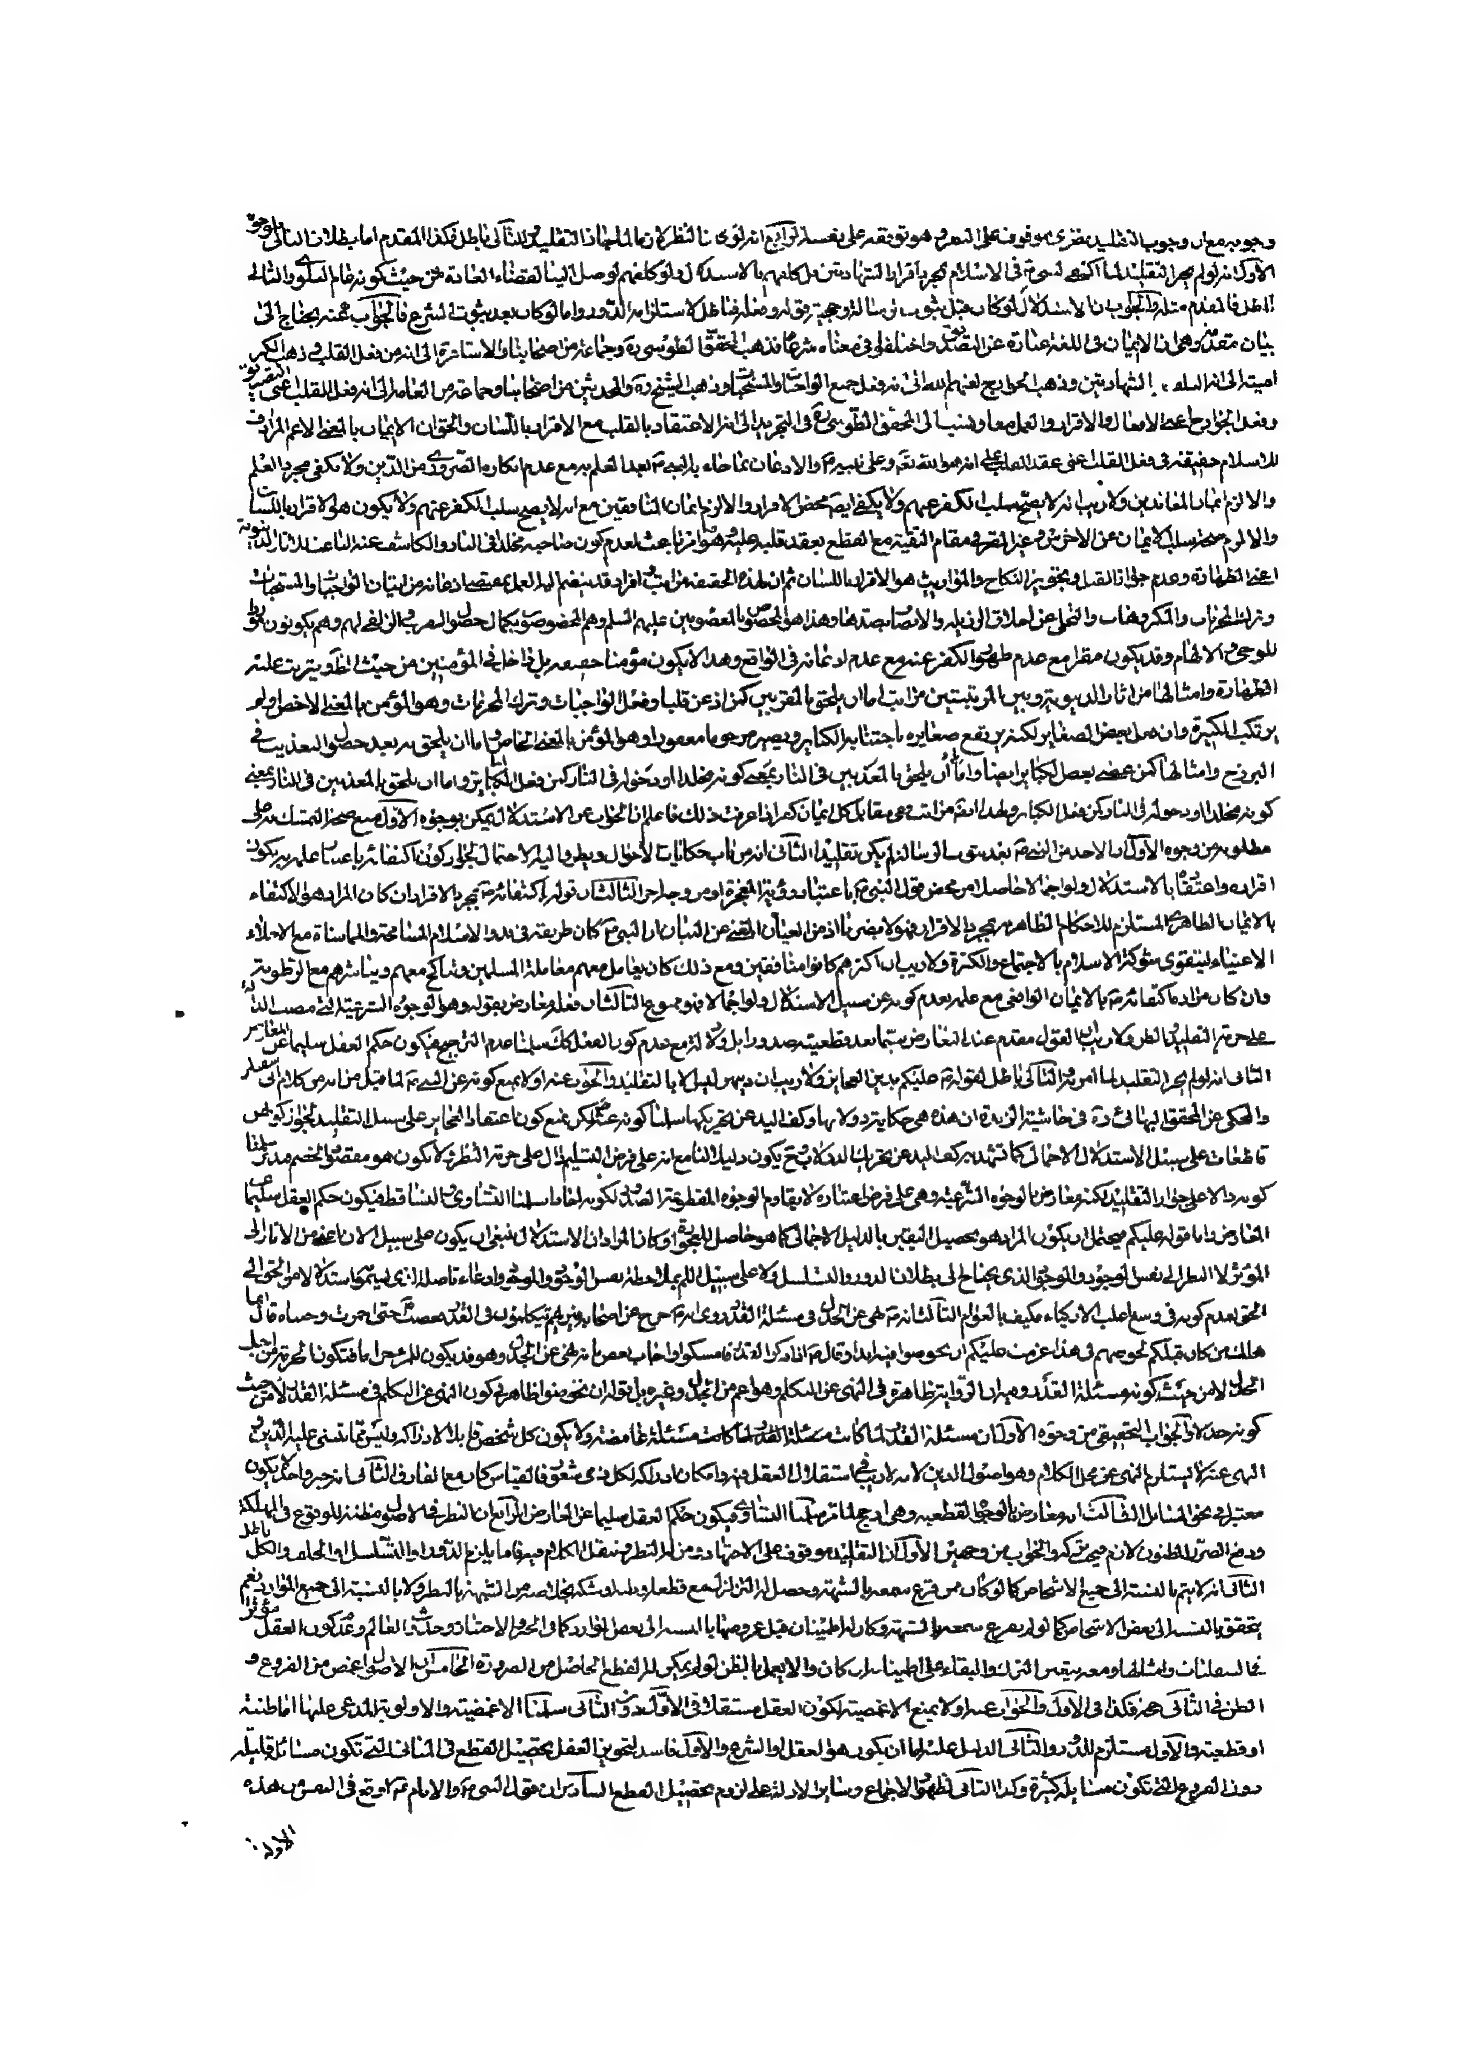 وجوبه مع ان وجوب التقليد نظرى موقوف على النظر وهو توقفه على نفسه الرابع انه لوى بالنظر لان ما لما جاز التقليد والتالى باطل فكذا المقدم اما بطلان التالى فلوجوه
الاول انه لو لم يجز التقليد لما اكتفى النبى ص فى الاسلام بمجرد اقرار الشهادتين بل كلفهم بالاستدلال ولو كلفهم لوصل الينا لقضاء العادة من حيث كونه عام البلوى والتالى
باطل فالمقدم مثله والجواب ان الاستدلال لو كان قبل ثبوت الرسالة وحجية قوله وفعله فباطل لاستلزامه الدور واما لو كان بعد ثبوت الشرع فالجواب عنه يحتاج الى
بيان مقدمة وهى ان الايمان فى اللغة عبارة عن التصديق واختلفوا فى معناه شرعا فذهب المحقق الطوسى ره وجماعة من اصحابنا والاشاعرة الى انه من فعل القلب وذهب الكر
امية الى انه التلفظ بالشهادتين وذهب الخوارج لعنهم الله الى انه فعل جميع الواجبات والمستحبات وذهب الشيخ ره والمحدثين من اصحابنا وجماعة من العامة الى انه فعل القلب اعنى التصديق
وفعل الجوارح اعنى الافعال والاقرار والعمل معا ونسب الى المحقق الطوسى ره فى التجريد الى انه الاعتقاد بالقلب مع الاقرار باللسان والحق ان الايمان بالمعنى الاعم المرادف
للاسلام حقيقة فى فعل القلب اعنى عقد القلب على انه هو الله تعه وعلى نبيه ص والاذعان بما جاء به النبى ص بعد العلم به مع عدم انكاره الضرورى من الدين ولا يكفى مجرد العلم
والا لزم ايمان المعاندين ولا ريب انه لا يصح سلب الكفر عنهم ولا يكفى ايضا محض الاقرار والا لزم ايمان المنافقين مع انه لا يصح سلب الكفر عنهم ولا يكون هو الاقرار باللسان
والا لزم صحة سلب الايمان عن الاخرس وغير المقر فى مقام التقية مع القطع بعقد قلبه عليه وهو امر باعث لعدم كون صاحبه مخلدا فى النار والكاشف عنه الباعث للاثار الدنيوية
اعنى الطهارة وعدم جواز القتل وتجويز النكاح والمواريث هو الاقرار باللسان ثم ان لهذه الحقيقة مراتب وافراد قد ينضم اليه العمل بمقتضى اذعانه من اتيان الواجبات والمستحبات
وترك المحرمات والمكروهات والتخلى عن اخلاق الرذيلة والاتصاف بضدها وهذا هو المخصوص بالمعصومين عليهم السلم وهم المخصوصون بكمال حصول القرب والزلفى لهم وهم يكونون مورد
للوحى والالهام وقد يكون مقرا مع عدم ظهور الكفر عنه مع عدم اذعانه فى الواقع وهذا لا يكون مؤمنا حقيقة بل داخل فى المؤمنين من حيث الظاهر ويترتب عليه
الطهارة وامثالها من اثار الدنيوية وبين المرتبتين مراتب اما ان يلحق بالمقربين كمن اذعن قلبا وفعل الواجبات وترك المحرمات وهو المؤمن بالمعنى الاخص او لم
يرتكب الكبيرة وان عمل بعض الصغاير لكنه يقع صغايره باجتنابه الكباير ويصير مرجوا معفوا وهو المؤمن بالمعنى الخاص واما ان يلحق به بعد حصول التعذيب فى
البرزخ وامثالها كمن عصى بعض الكباير ايضا واما ان يلحق بالمعذبين فى النار بمعنى كونه مخلدا او دخوله فى النار كمن فعل الكباير واما ان يلحق بالمعذبين فى النار بمعنى
كونه مخلدا او دخوله فى النار كمن فعل الكباير ولهذا اقسام من الشدة فى مقابل كل ايمان كفر اذا عرفت ذلك فاعلم ان الجواب عن الاستدلال يمكن بوجوه الاول منع صحة التمسك به على
مطلوبه من وجوه الاول ان الاخذ من النبى ص بعد ثبوت الرسالة لم يكن تقليدا الثانى انه من باب حكايات الاحوال ويطرق اليه الاحتمال لجواز كون اكتفائه باعتبار علمه بكون
اقراره واعتقاده بالاستدلال ولو اجمالا حاصلا من محض قول النبى ص باعتبار رؤية المعجزة او من وجه اخر الثالث ان قوله اكتفائه ص بمجرد الاقرار ان كان المراد هو الاكتفاء
بالايمان الظاهرى المستلزم للاحكام الظاهرية بمجرد الاقرار فهو لا يضرنا اذ من العيان المغنى عن البيان ان النبى ص كان طريقته فى بدو الاسلام المسامحة والمماشاة مع الاجلاء
الاغنياء ليتقوى شوكة الاسلام بالاجتماع والكثرة ولا ريب ان اكثرهم كانوا منافقين ومع ذلك كان يعامل معهم معاملة المسلمين ويناكح معهم ويباشرهم مع الرطوبة
وان كان مراده اكتفائه ص بالايمان الواقعى مع علمه بعدم كونه عن سبيل الاستدلال ولو اجمالا فهو ممنوع الثالث ان فعله معارض بقوله وهو الوجوه الشرعية التى مضت الدالة
على حرمة التقليد والظن ولا ريب ان القول مقدم عند التعارض سيما بعد قطعيته صدورا بل ودلالة مع عدم كون الفعل كك سلمنا عدم الترجيح فيكون حكم العقل سليما عن المعارض
الثانى انه لو لم يجز التقليد لما امر به والتالى باطل لقوله ص عليكم بدين العجايز ولا ريب ان دينهن ليس الا بالتقليد والجواب عنه اولا بمنع كونه عن النبى ص لما قيل من انه من كلام سفيان
والحكى عن المحقق البهائى ره فى حاشية الزبدة ان هذه هى حكاية دولابها وكف اليد عن تحريكها سلمنا كونه عنه ص لكن نمنع كون اعتقاد العجايز على سبيل التقليد لجواز كونهن
قاطعات على سبيل الاستدلال الاجمالى كما تشهد به كف اليد عن تحريك الدولاب فح يكون دليلا لنا مع انه على فرض التسليم دال على حرمة النظر ولا يكون هو مقصود الخصم مدعى سلمنا
كونه دالا على جواز التقليد لكنه معارض بالوجوه الشرعية وهى على فرض اعتباره لا يقاوم الوجوه المقطوعة الصدور لكونه احادا سلمنا التساوى والتساقط فيكون حكم العقل سليما عن
المعارض واما قوله عليكم فيحتمل ان يكون المراد هو تحصيل اليقين بالدليل الاجمالى كما هو حاصل للعجوزة او كان المراد ان الاستدلال ينبغى ان يكون على سبيل الان اعنى من الاثار الى
المؤثر لا النظر الى نفس الوجود والموجود الذى يحتاج الى بطلان الدور والتسلسل ولا على سبيل اللم بملاحظة نفس الوجود والموجود وادعاء تاصله الذى ليسموا استدلالا من الحق الى
الحق بعدم كونه فى وسع اغلب الاذكياء فكيف بالعوام الثالث انه ص نهى عن الجدل فى مسئلة القدر روى انه ص خرج عن اصحابه فراهم يتكلمون فى القدر فغضب ص حتى احمرت وجنتاه قال انما
هلك من كان قبلكم لخوضهم فى هذا عزمت عليكم ان لا تخوضوا فيه ابدا وقال ص اذا ذكر القدر فامسكوا واجاب بعض بانه نهى عن الجدل وهو قد يكون للمراء حراما فتكون الحرمة من اجل
الجدل لا من حيث كونه مسئلة القدر وفيه ان الرواية ظاهرة فى النهى عن التكلم وهو اعم من الجدل وغيره بل قوله ان تخوضوا ظاهر فى كون النهى عن التكلم فى مسئلة القدر لا من حيث
كونه جدلا والجواب التحقيقى من وجوه الاول ان مسئلة القدر لما كانت مسئلة القدر لما كانت مسئلة غامضة ولا يكون كل شخص قابلا لادراكه وليس مما يبتنى عليه الدين و
النهى عنه لا يستلزم النهى عن محل الكلام وهو اصول الدين لانه لا ريب فى استقلال العقل فيه وامكان ادراكه لكل ذى شعور فالقياس كان مع الفارق الثانى انه خبر واحد لا يكون
معتبرا فى نحو المسائل الثالث انه معارض بالوجوه القطعية وهى ارجح لما مر سلمنا التساوى فيكون حكم العقل سليما عن المعارض الرابع ان النظر فى الاصول مظنة للوقوع فى المهلكة
ودفع الضرر المظنون لازم فيحرم النظر والجواب من وجهين الاول ان التقليد موقوف على الاجتهاد فمن له النظر وننقل الكلام فيه فاما يلزم الدور او التسلسل او الخلف والكل باطل
الثانى انه لا يتم بالنسبة الى جميع الاشخاص كما لو كان من قرع سمعه بالشبهة وحصل له التزلزل مع قطعه او ظنه او شكه بخلاصه من الشبهة بالنظر ولا بالنسبة الى جميع الموارد نعم
يتحقق بالنسبة الى بعض الاشخاص كما لو لم يقرع سمعه بالشبهة وكان له اطمينان قبل عروضها بالنسبة الى بعض الموارد كما فى الجبر والاختيار وحدوث العالم وقدمه وكون العقل مؤثرا
فى السفليات وامثالها ومعه يتعين الترك والبقاء على اطمينانه ان كان والا يعمل بالظن لو لم يمكن له القطع الحاصل من الضرورة الخامس ان الاصول اغمض من الفروع و
الظن فى الثانى مجز فكذا فى الاول والجواب عنه اولا بمنع الاغمضية لكون العقل مستقلا فى الاول دون الثانى سلمنا الاغمضية والاولوية المدعى عليها اما ظنية
او قطعية والاول مستلزم للدور والثانى الدليل عليها اما ان يكون هو العقل او الشرع والاول فاسد لتجويز العقل تحصيل القطع فى المبانى التى تكون مسائله قليلة
دون الفروع التى تكون مسايله كثيرة وكذا الثانى لظهور الاجماع وساير الادلة على لزوم تحصيل القطع السادس ان قول النبى ص والامام ع اوقع فى النفس من هذه
الادلة